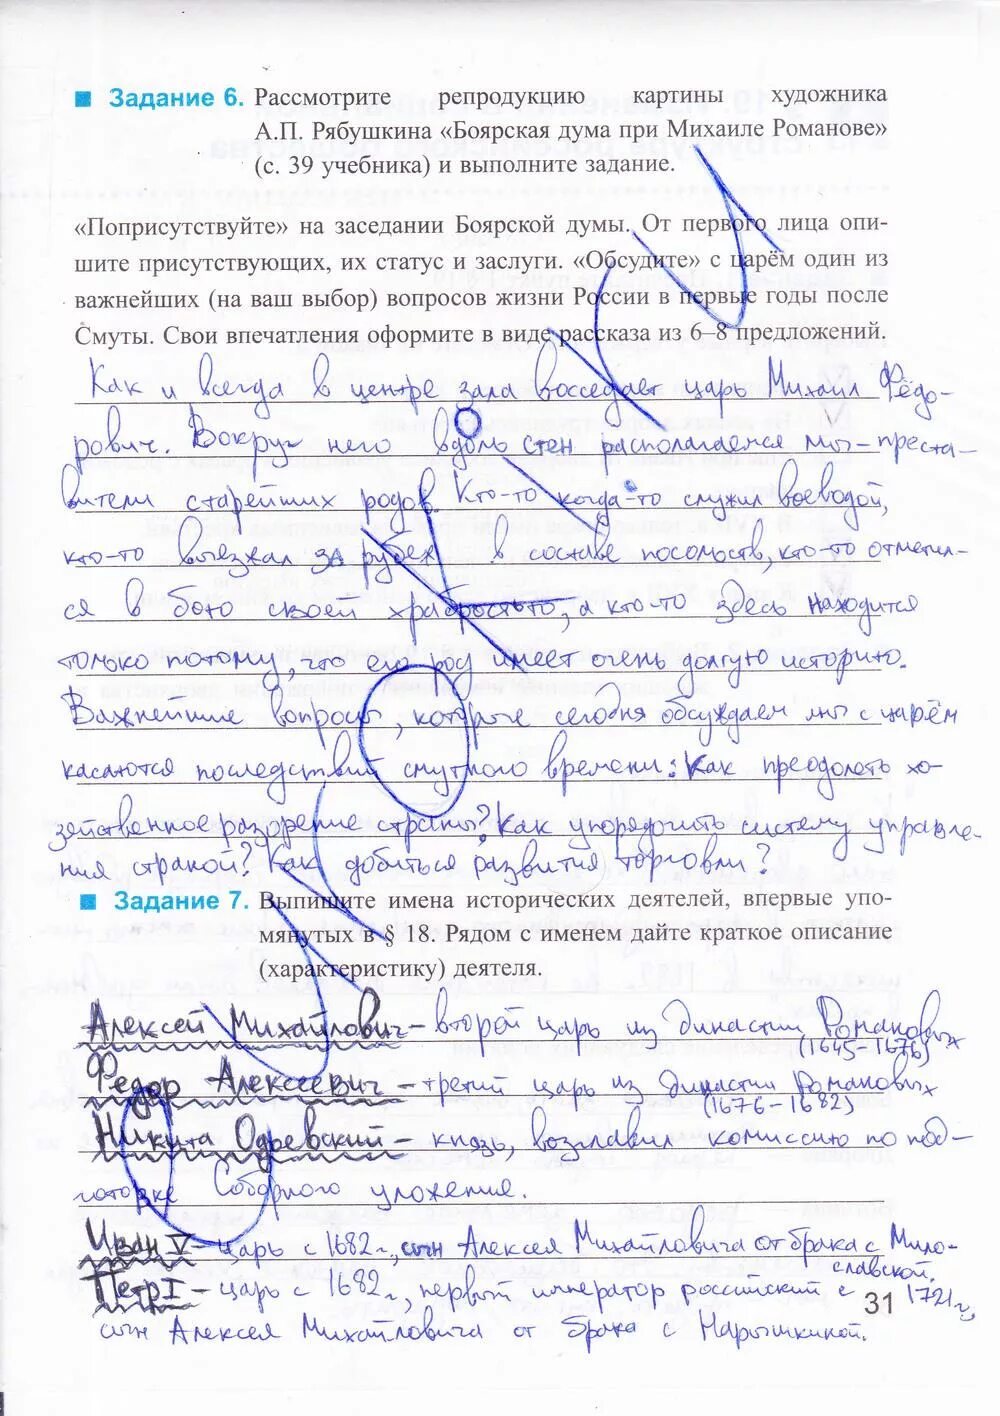 Задание 6. Рассмотрите репродукцию картины художника
А.П. Рябушкина «Боярская дума при Михаиле Романове»
(с. 39 учебника) и выполните задание.
«Поприсутствуйте» на заседании Боярской думы. От первого лица опи-
шите присутствующих, их статус и заслуги. «Обсудите» с царём один из
важнейших (на ваш выбор) вопросов жизни России в первые годы после
Смуты. Свои впечатления оформите в виде рассказа из 6–8 предложений.
Как и всегда в центре зала восседает царь Михаил Фёдо-
рович. Вокруг него вдоль стен располагаемся мы – преста-
вители старейших родов. Кто-то когда-то служил воеводой,
кто-то выезжал за рубеж в составе посольств, кто-то отметил-
ся в бою своей храбростью, а кто-то здесь находится
только потому, что его род имеет очень долгую историю.
Важнейшие вопросы, которые сегодня обсуждаем мы с царём
касаются последствий смутного времени: Как преодолеть хо-
зяйственное разорение страны? Как упорядочить систему управле-
ния страной? Как добиться развития торговли?
Задание 7. Выпишите имена исторических деятелей, впервые упо-
мянутых в § 18. Рядом с именем дайте краткое описание
(характеристику) деятеля.
Алексей Михайлович – второй царь из династии Романовых
(1645–1676)
Федор Алексеевич – третий царь из династии Романовых
(1676–1682)
Никита Одоевский – князь, возглавил комиссию по под-
готовке Соборного уложения.
Иван V – царь с 1682 г, сын Алексея Михайловича от брака с Мило-
славской.
Петр I – царь с 1682 г, первый император российский с 1721 г,
31
сын Алексея Михайловича от брака с Нарышкиной.